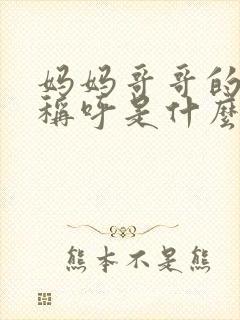 妈妈哥哥的
稱呼是什麼
熊本不是熊